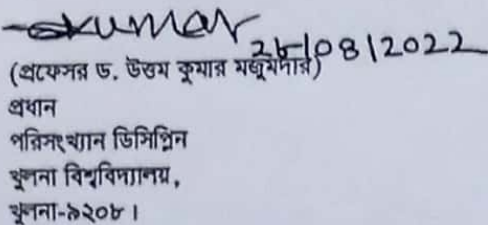 -skumar
28/08/2022
(প্রফেসর ড. উত্তম কুমার মজুমদার)
প্রধান
পরিসংখ্যান ডিসিপ্লিন
খুলনা বিশ্ববিদ্যালয়,
খুলনা-৯২০৮।